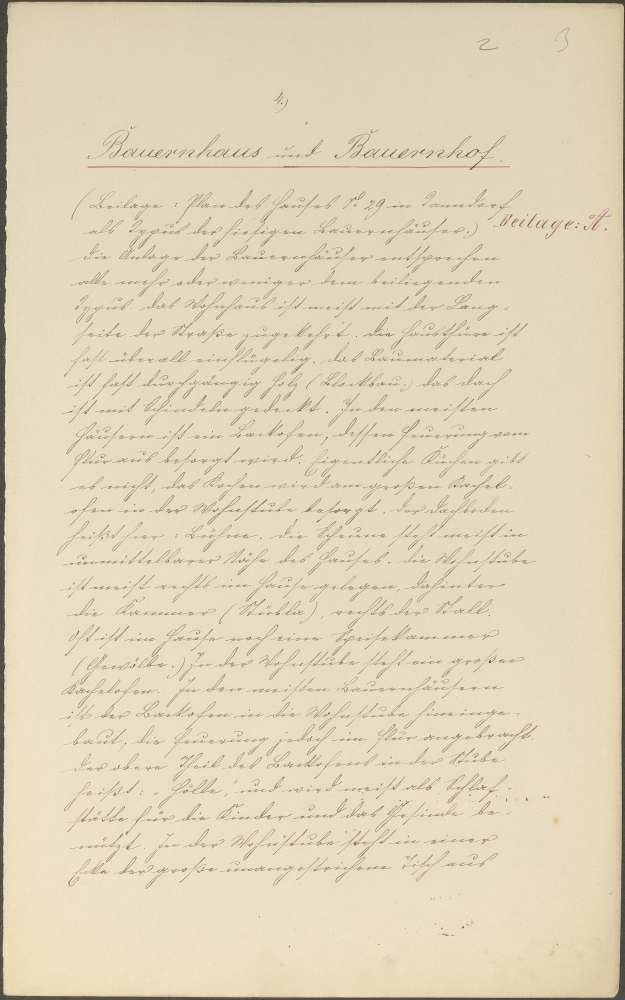 2 3
4.)
Bauernhaus und Bauernhof.
(Beilage: Plan des Hauses No 29 in Tanndorf
als Typus der hiesigen Bauernhäuser.) Beilage: A.
Die Anlage der Bauernhäuser entsprechen
alle mehr oder weniger dem beiliegenden
Typus. Das Wohnhaus ist meist mit der Lang-
seite der Straße zugekehrt. Die Hausthüre ist
fast überall einflügelig. Das Baumaterial
ist fast durchgängig Holz (Blockbau.) Das Dach
ist mit Schindeln gedeckt. In den meisten
Häusern ist ein Backofen, dessen Feuerung vom
Flur aus besorgt wird. Eigentliche Küchen gibt
es nicht, das Kochen wird am großen Kachel-
ofen in der Wohnstube besorgt. Der Dachboden
heißt hier: Bühne. Die Scheune steht meist in
unmittelbarer Nähe des Hauses. Die Wohnstube
ist meist rechts im Hause gelegen, dahinter
die Kammer (Stübla), rechts der Stall.
Oft ist im Hause noch eine Speisekammer
(Gewölbe.) In der Wohnstube steht ein großer
Kachelofen. In den meisten Bauernhäusern
ist der Backofen in die Wohnstube hineinge-
baut, die Feuerung jedoch im Flur angebracht.
Der obere Theil des Backofens in der Stube
heißt: „Hölle," und wird meist als Schlaf-
stätte für die Kinder und das Gesinde be-
nützt. In der Wohnstube steht in einer
Ecke der große unangestrichene Tisch aus